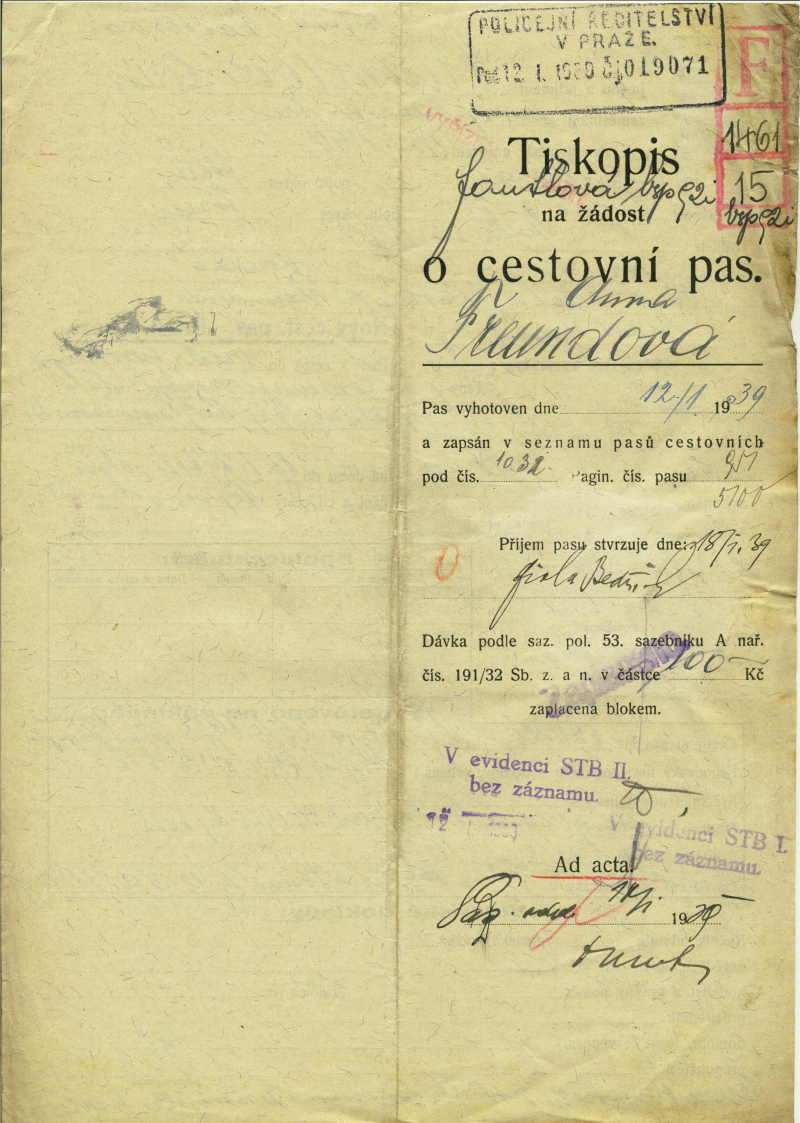 POLICEJNÍ ŘEDITELSTVÍ
V PRAZE.
12. I. 1939 čj 019071
F
1461
15
Tiskopis
na žádost
o cestovní pas.
Anna
Freundová
Pas vyhotoven dne 12/1. 1939
a zapsán v seznamu pasů cestovních
pod čís. 1032. Pagin. čís. pasu 951
5100
Příjem pasu stvrzuje dne: 18/I. 39
Dávka podle saz. pol. 53. sazebníku A nař.
čís. 191/32 Sb. z. a n. v částce 100 Kč
zaplacena blokem.
V evidenci STB II.
bez záznamu.
V evidenci STB I.
bez záznamu.
Ad acta.
1939